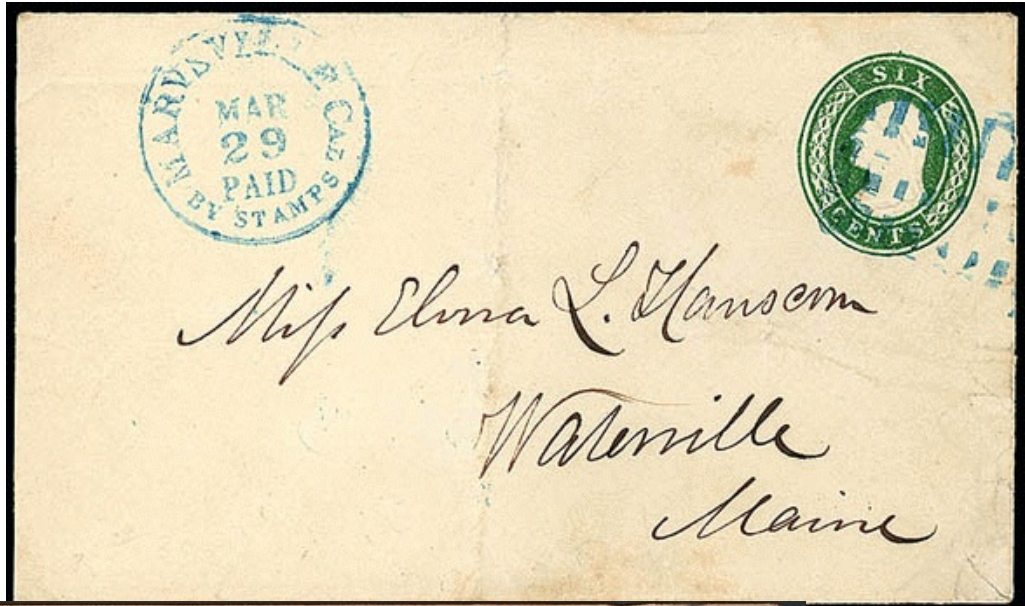 MARYSVILLE CAL
MAR
29
PAID
BY STAMPS
SIX
CENTS
Miss Elvira L. Hanscom
Waterville
Maine